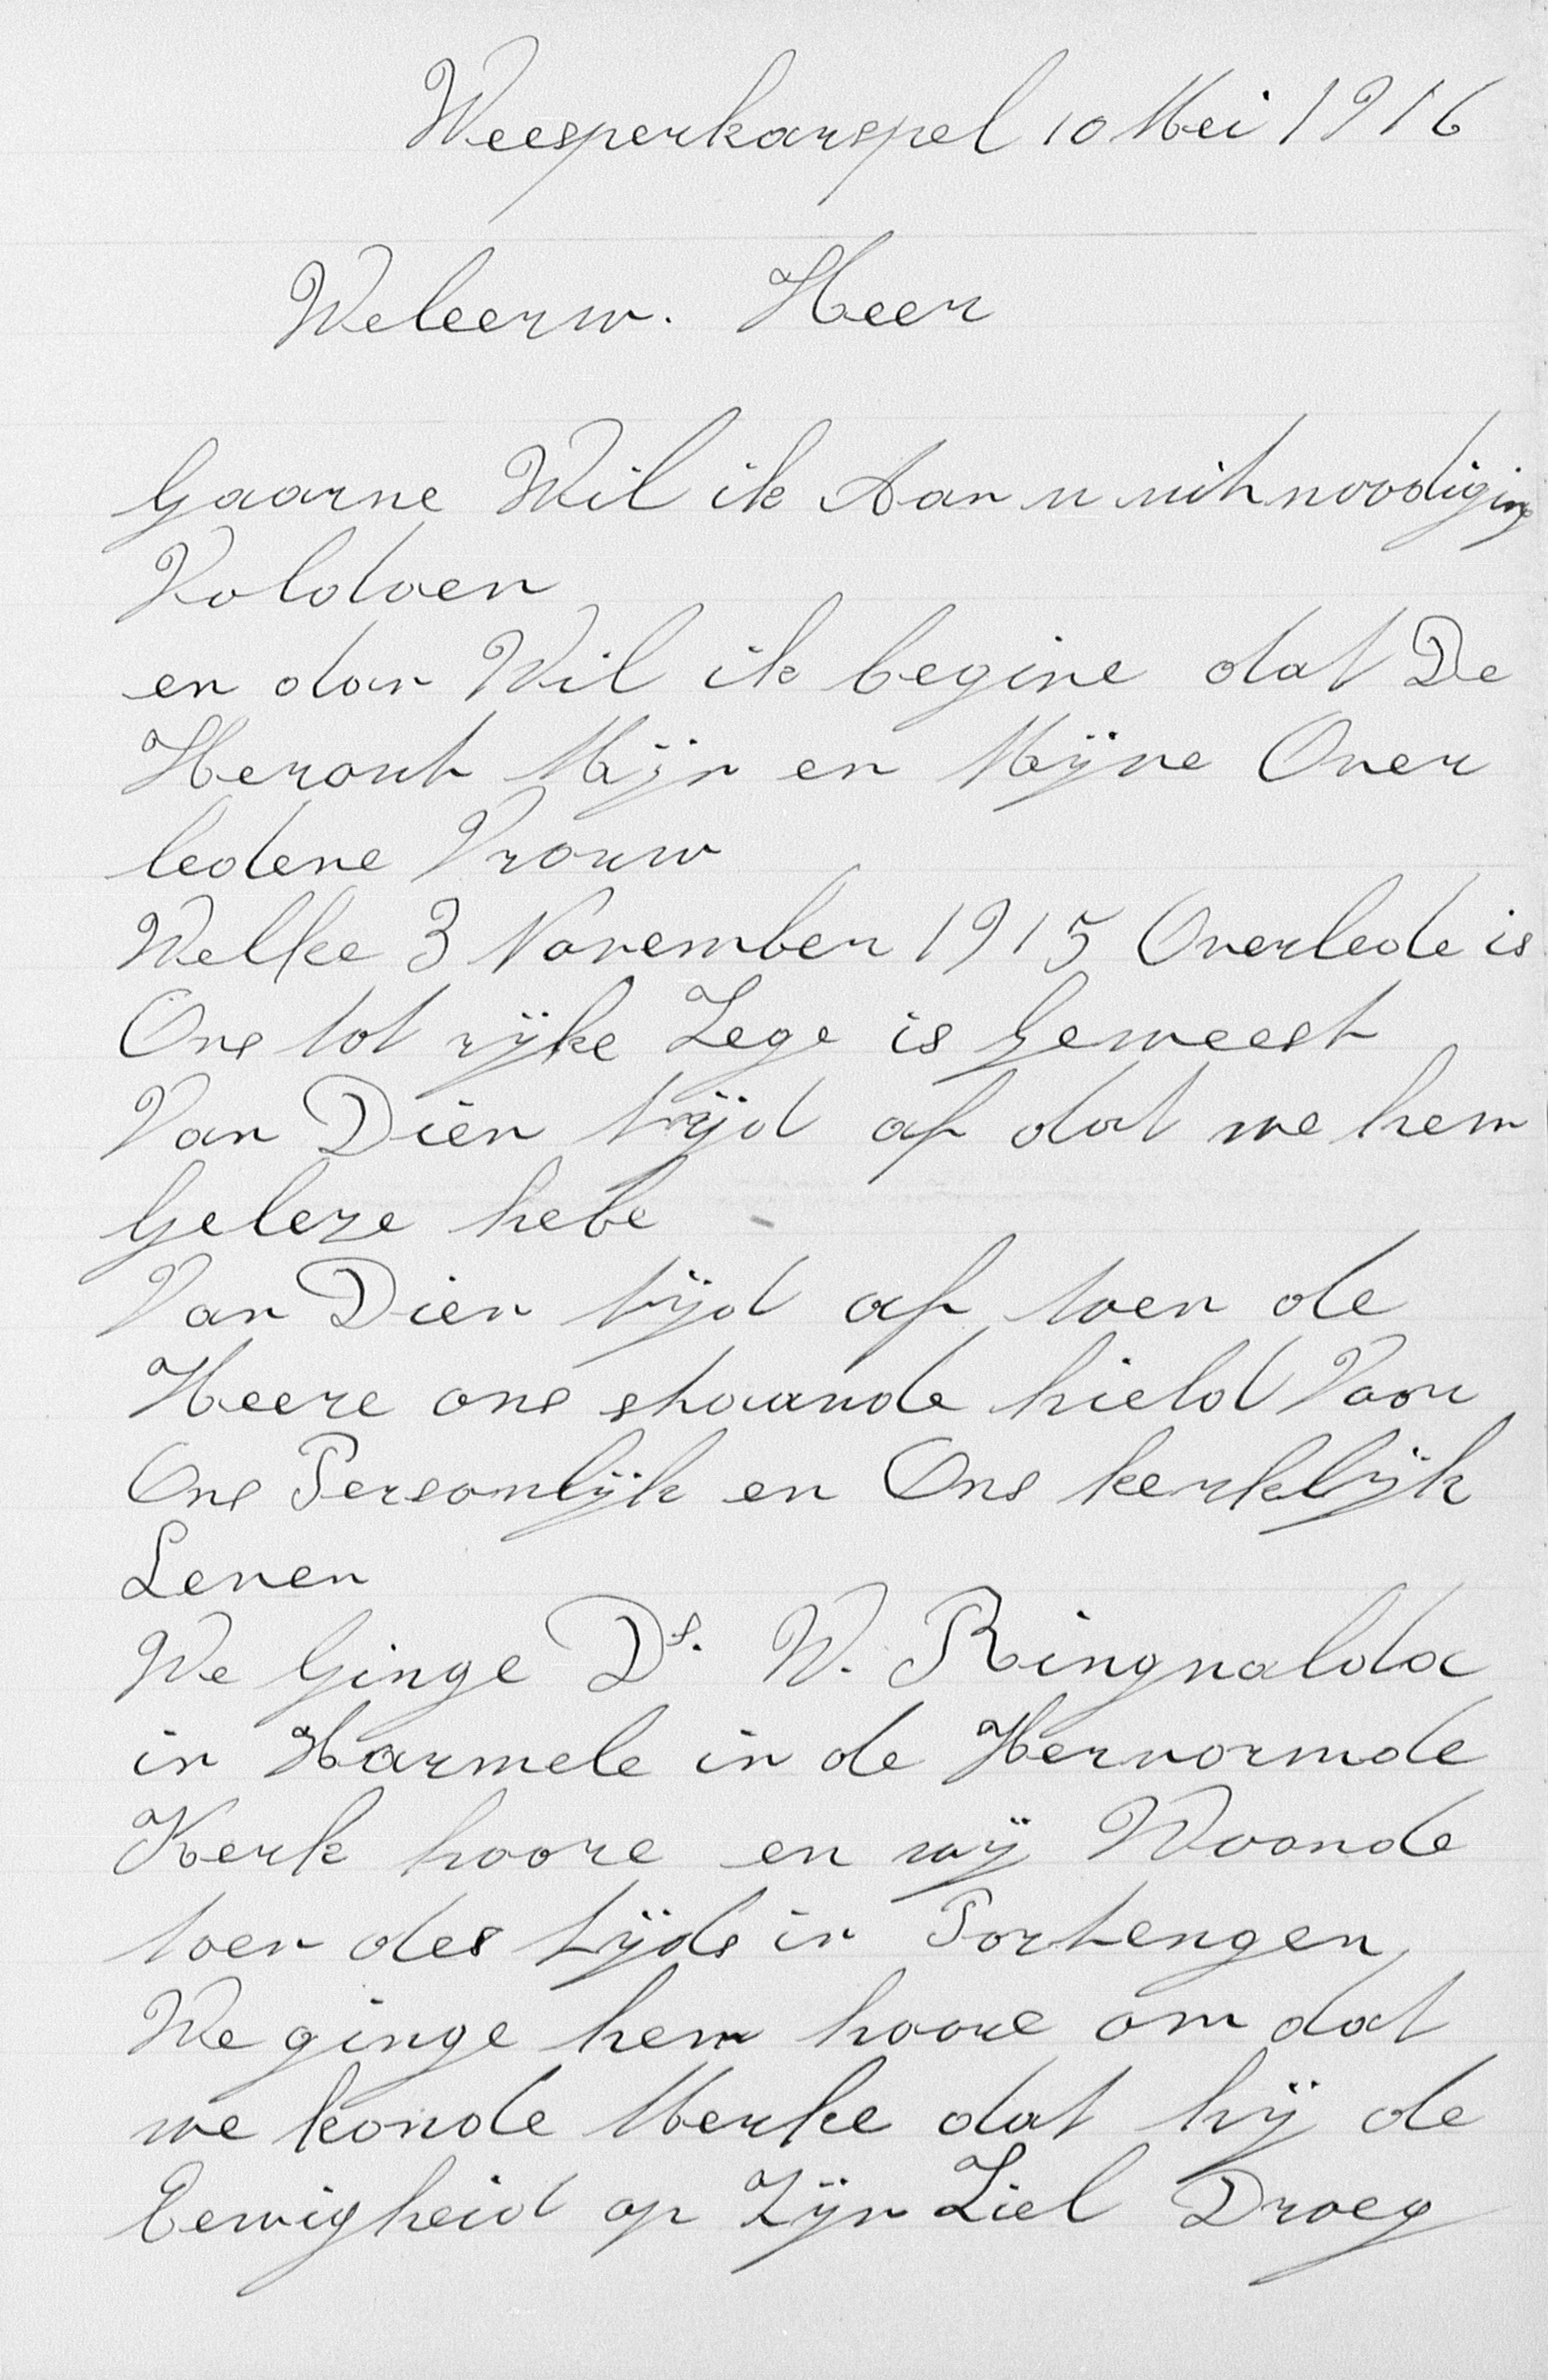 Weesperkarspel 10 Mei 1916
Weleerw. Heer
Gaarne Wil ik Aan u uitnoodiging
Voldoen
en dan Wil ik begine dat De
Heraut Mijn en Mijne Over
ledene Vrouw
Welke 3 November 1915 Overlede is
Ons tot rijke Zege is Geweest
Van Dien tijd af dat we hem
Geleze hebe
Van Dien tijd af toen de
Heere ons staande hield Voor
Ons Persoonlijk en Ons kerklijk
Leven
We Ginge Ds. W. Ringnalda
in Harmele in de Hervormde
Kerk hoore en wij Woonde
toen des tijds in Portengen
We ginge hem hoore om dat
we konde Merke dat hij de
Eewigheid op Zijn Ziel Droeg